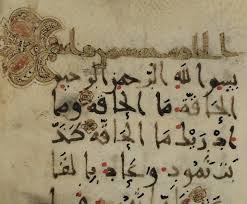 بسم الله الرحمن الرحيم
الحاقة ما الحاقة وما
ادريك ما الحاقة كذ
بت ثمود وعاد بالقا